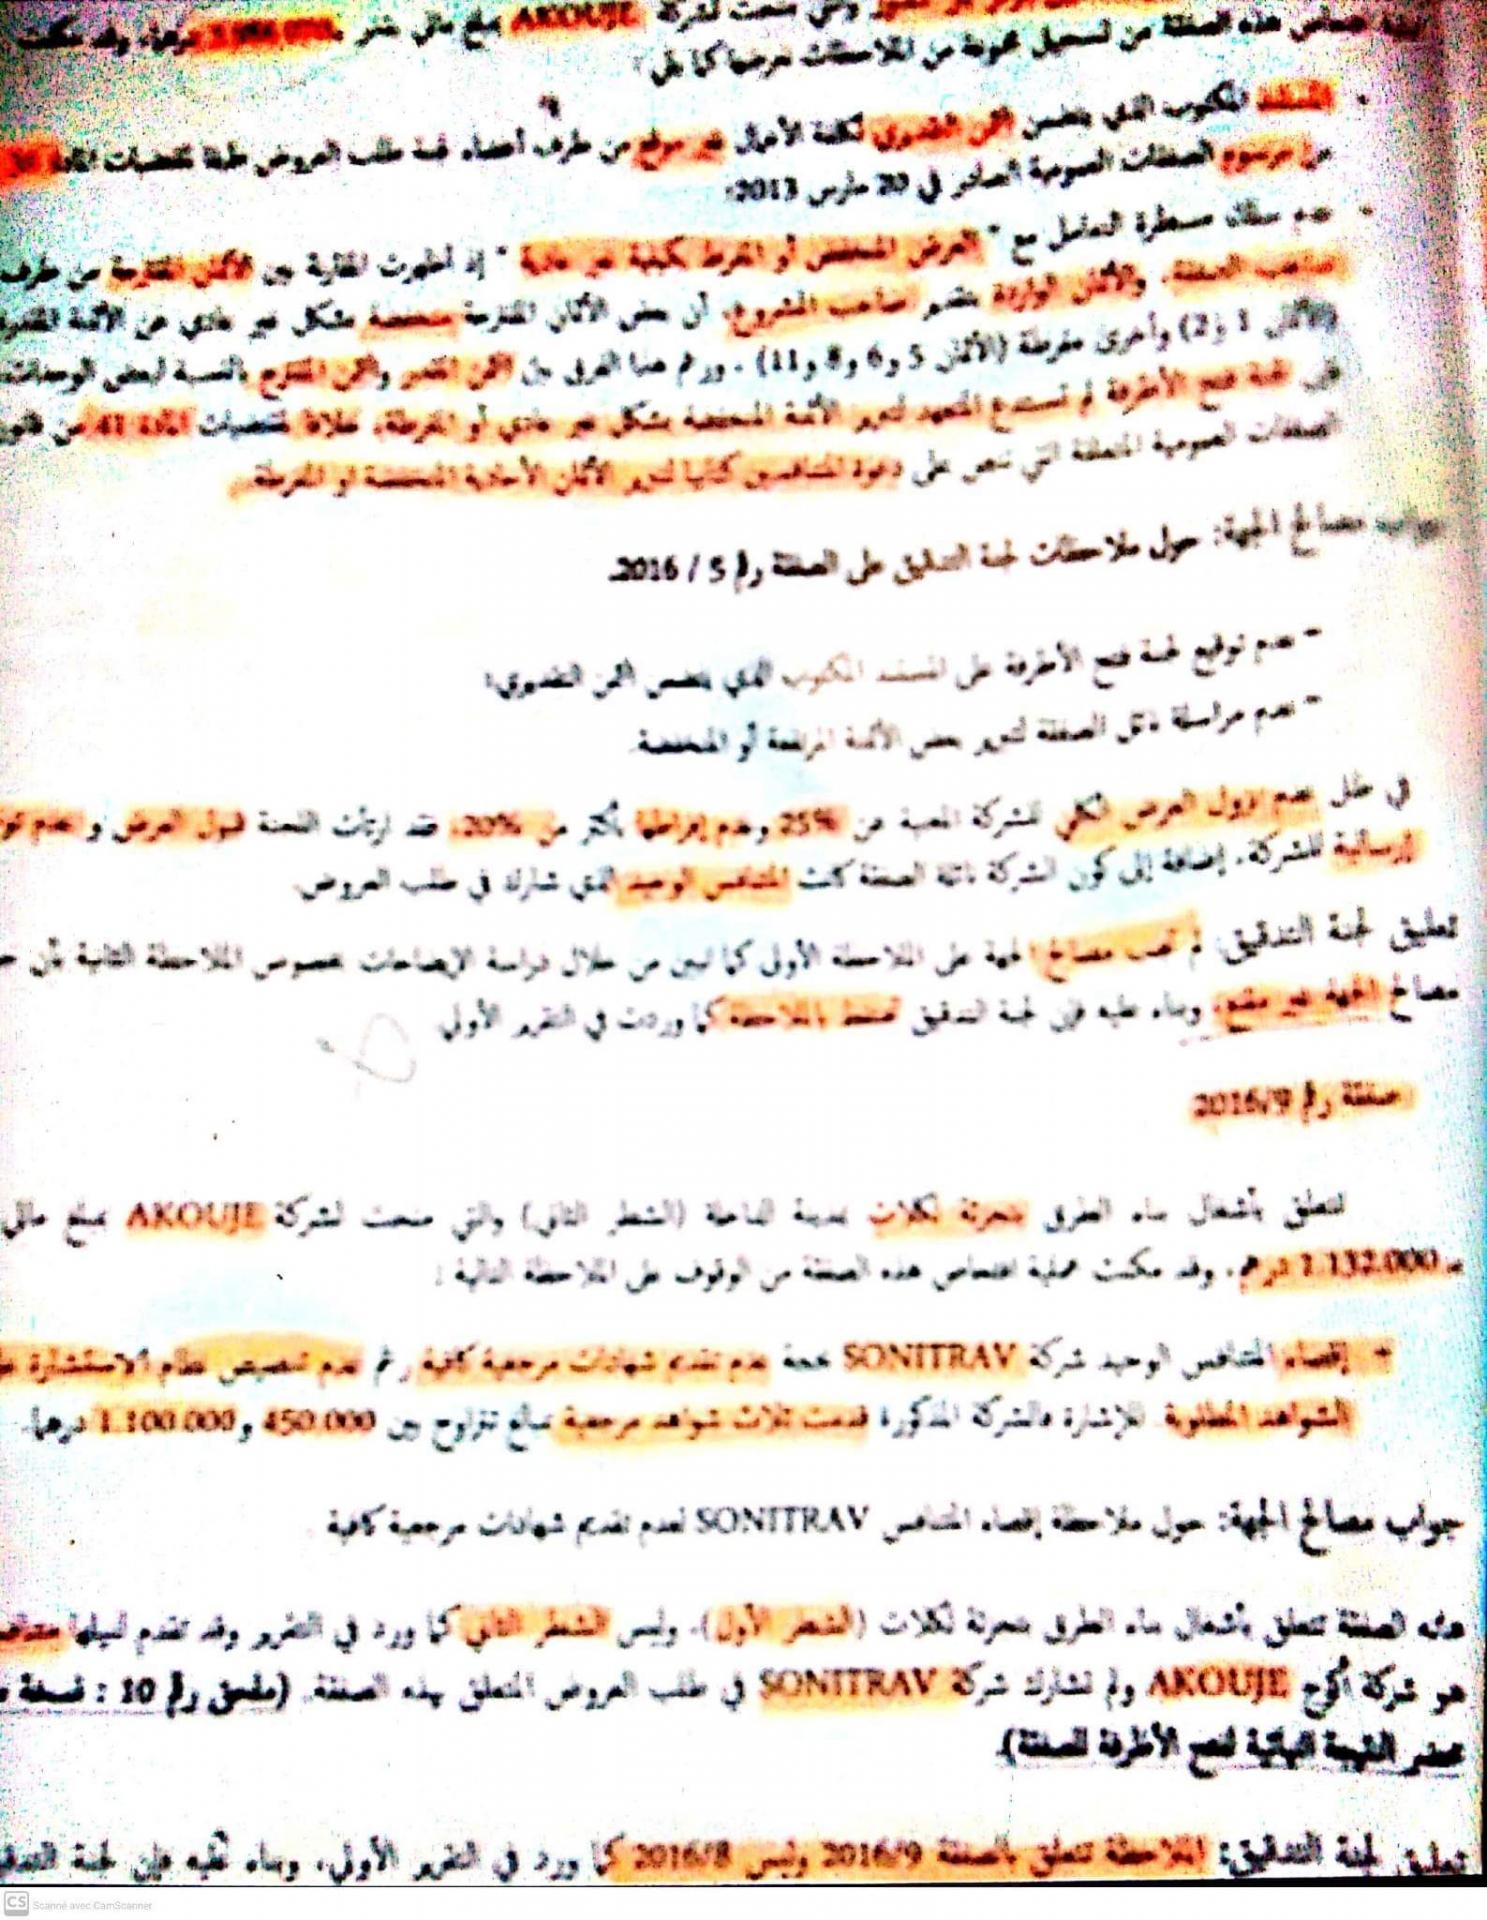 هذه الصفقة من تسجيل مجموعة من الملاحظات نوجزها كما يلي:
المستند المكتوب الذي يتضمن الثمن التقديري لكلفة الأعمال غير موقع من طرف أعضاء لجنة طلب العروض طبقا لمقتضيات المادة
من مرسوم الصفقات العمومية الصادر في 20 مارس 2013؛
عدم سلك مسطرة التعامل مع " العرض المنخفض أو المفرط بكيفية غير عادية " إذ أظهرت المقارنة بين الأثمان المقترحة من طرف
صاحب الصفقة، والأثمان الواردة بتقدير صاحب المشروع، أن بعض الأثمان المقترحة منخفضة بشكل غير عادي عن الأثمنة
(الأثمان 1 و2) وأخرى مفرطة (الأثمان 5 و6 و8 و11). ورغم هذا الفرق بين الثمن المقدر والثمن المقترح بالنسبة لبعض الوحدات
فإن لجنة فتح الأظرفة لم تستدع المتعهد لتبرير الأثمنة المنخفضة بشكل غير عادي أو المفرطة، خلافا لمقتضيات المادة 41 من
الصفقات العمومية المتعلقة التي تنص على دعوة المتنافسين كتابيا لتبرير الأثمان الأحادية المنخفضة او المفرطة.
جواب مصالح الجهة: حول ملاحظات لجنة التدقيق على الصفقة رقم 5 / 2016.
– عدم توقيع لجنة فتح الأظرفة على المستند المكتوب الذي يتضمن الثمن التقديري؛
– عدم مراسلة نائل الصفقة لتبرير بعض الأثمنة المرتفعة أو المنخفضة.
في ظل عدم نزول العرض الكلي للشركة المعنية عن 25% وعدم إفراطها بأكثر من 20%، فقد ارتأت اللجنة قبول العرض و عدم
إرسالية للشركة. إضافة إلى كون الشركة نائلة الصفقة كانت المتنافس الوحيد الذي شارك في طلب العروض.
تعليق لجنة التدقيق: لم تجب مصالح الجهة على الملاحظة الأولى كما تبين من خلال دراسة الإيضاحات بخصوص الملاحظة الثانية بأن
مصالح الجهة غير مقنع، وبناء عليه فإن لجنة التدقيق تحتفظ بالملاحظة كما وردت في التقرير الأولي.
صفقة رقم 2016/9
تتعلق بأشغال بناء الطرق بتجزئة لكلات بمدينة الداخلة (الشطر الثاني) والتي منحت لشركة AKOUJE بمبلغ مالي
1.132.000 درهم. وقد مكنت عملية افتحاص هذه الصفقة من الوقوف على الملاحظة التالية :
+ إقصاء المتنافس الوحيد شركة SONITRAV بحجة عدم تقديم شهادات مرجعية كافية رغم عدم تنصيص نظام الاستشارة
الشواهد المطلوبة. للإشارة فالشركة المذكورة قدمت ثلاث شواهد مرجعية بمبالغ تتراوح بين 450.000 و1.100.000 درهما.
جواب مصالح الجهة: حول ملاحظة إقصاء المتنافس SONITRAV لعدم تقديم شهادات مرجعية كافية
هذه الصفقة تتعلق بأشغال بناء الطرق بتجزئة لكلات (الشطر الأول)، وليس الشطر الثاني كما ورد في التقرير وقد تقدم لنيلها
هو شركة أكوج AKOUJE ولم تشارك شركة SONITRAV في طلب العروض المتعلق بهذه الصفقة. (ملحق رقم 10 : نسخة
محضر النتيجة النهائية لفتح الأظرفة للصفقة).
تعليق لجنة التدقيق: الملاحظة تتعلق بالصفقة 2016/9 وليس 2016/8 كما ورد في التقرير الأولي، وبناء عليه فإن لجنة
CS Scanné avec CamScanner